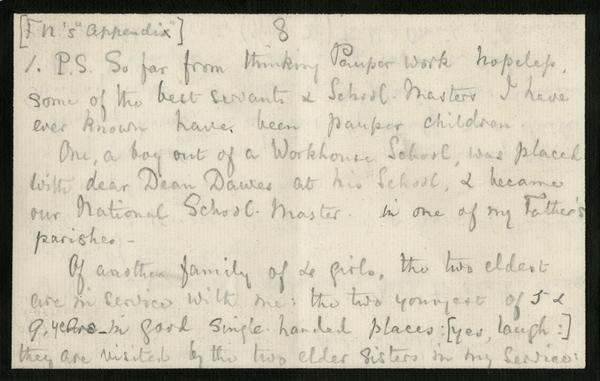 [F N's "Appendix"] 8
1. P.S. So far from thinking Pauper work hopeless,
some of the best servants & School-Masters I have
ever known have been pauper children.
One, a boy out of a Workhouse School, was placed
with dear Dean Dawes at his School, & became
our National School-Master in one of my Father's
parishes -
Of another family of 4 girls, the two eldest
are in service with me: the two youngest of 5 &
9 years - in good single-handed places: [yes, laugh:]
they are visited by the two elder sisters in my service: